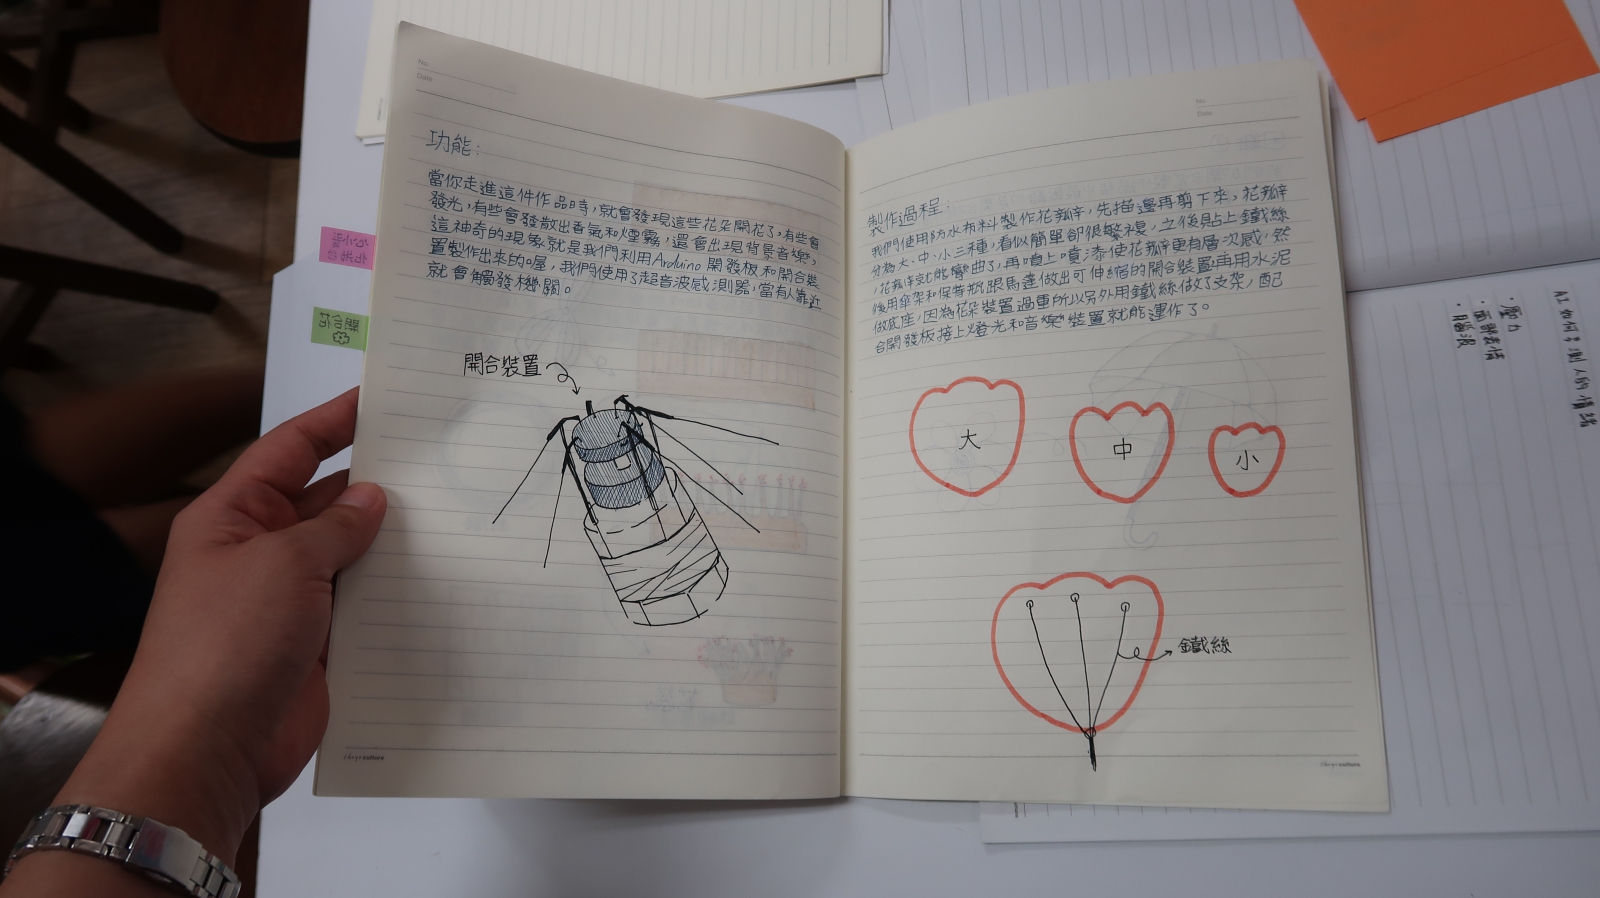 No.
Date
功能：
當你走進這件作品時，就會發現這些花朵開花了，有些會
發光，有些會發散出香氣和煙霧，還會出現背景音樂，
這神奇的現象就是我們利用Arduino開發板和開合裝
置製作出來的喔，我們使用了超音波感測器，當有人靠近
就會觸發機關。
開合裝置
No.
Date
製作過程：
我們使用防水布料製作花瓣，先描邊再剪下來，花瓣
分為大、中、小三種，看似簡單卻很繁複，之後貼上鐵絲
，花瓣就能彎曲了，再噴上噴漆使花瓣更有層次感，然
後用傘架和保特瓶跟馬達做出可伸縮的開合裝置再用水泥
做底座，因為花朵裝置過重所以另外用鐵絲做了支架，配
合開發板接上燈光和音樂裝置就能運作了。
大
中
小
鐵絲
AI如何多測人的情緒
·壓力
·面部表情
·腦波